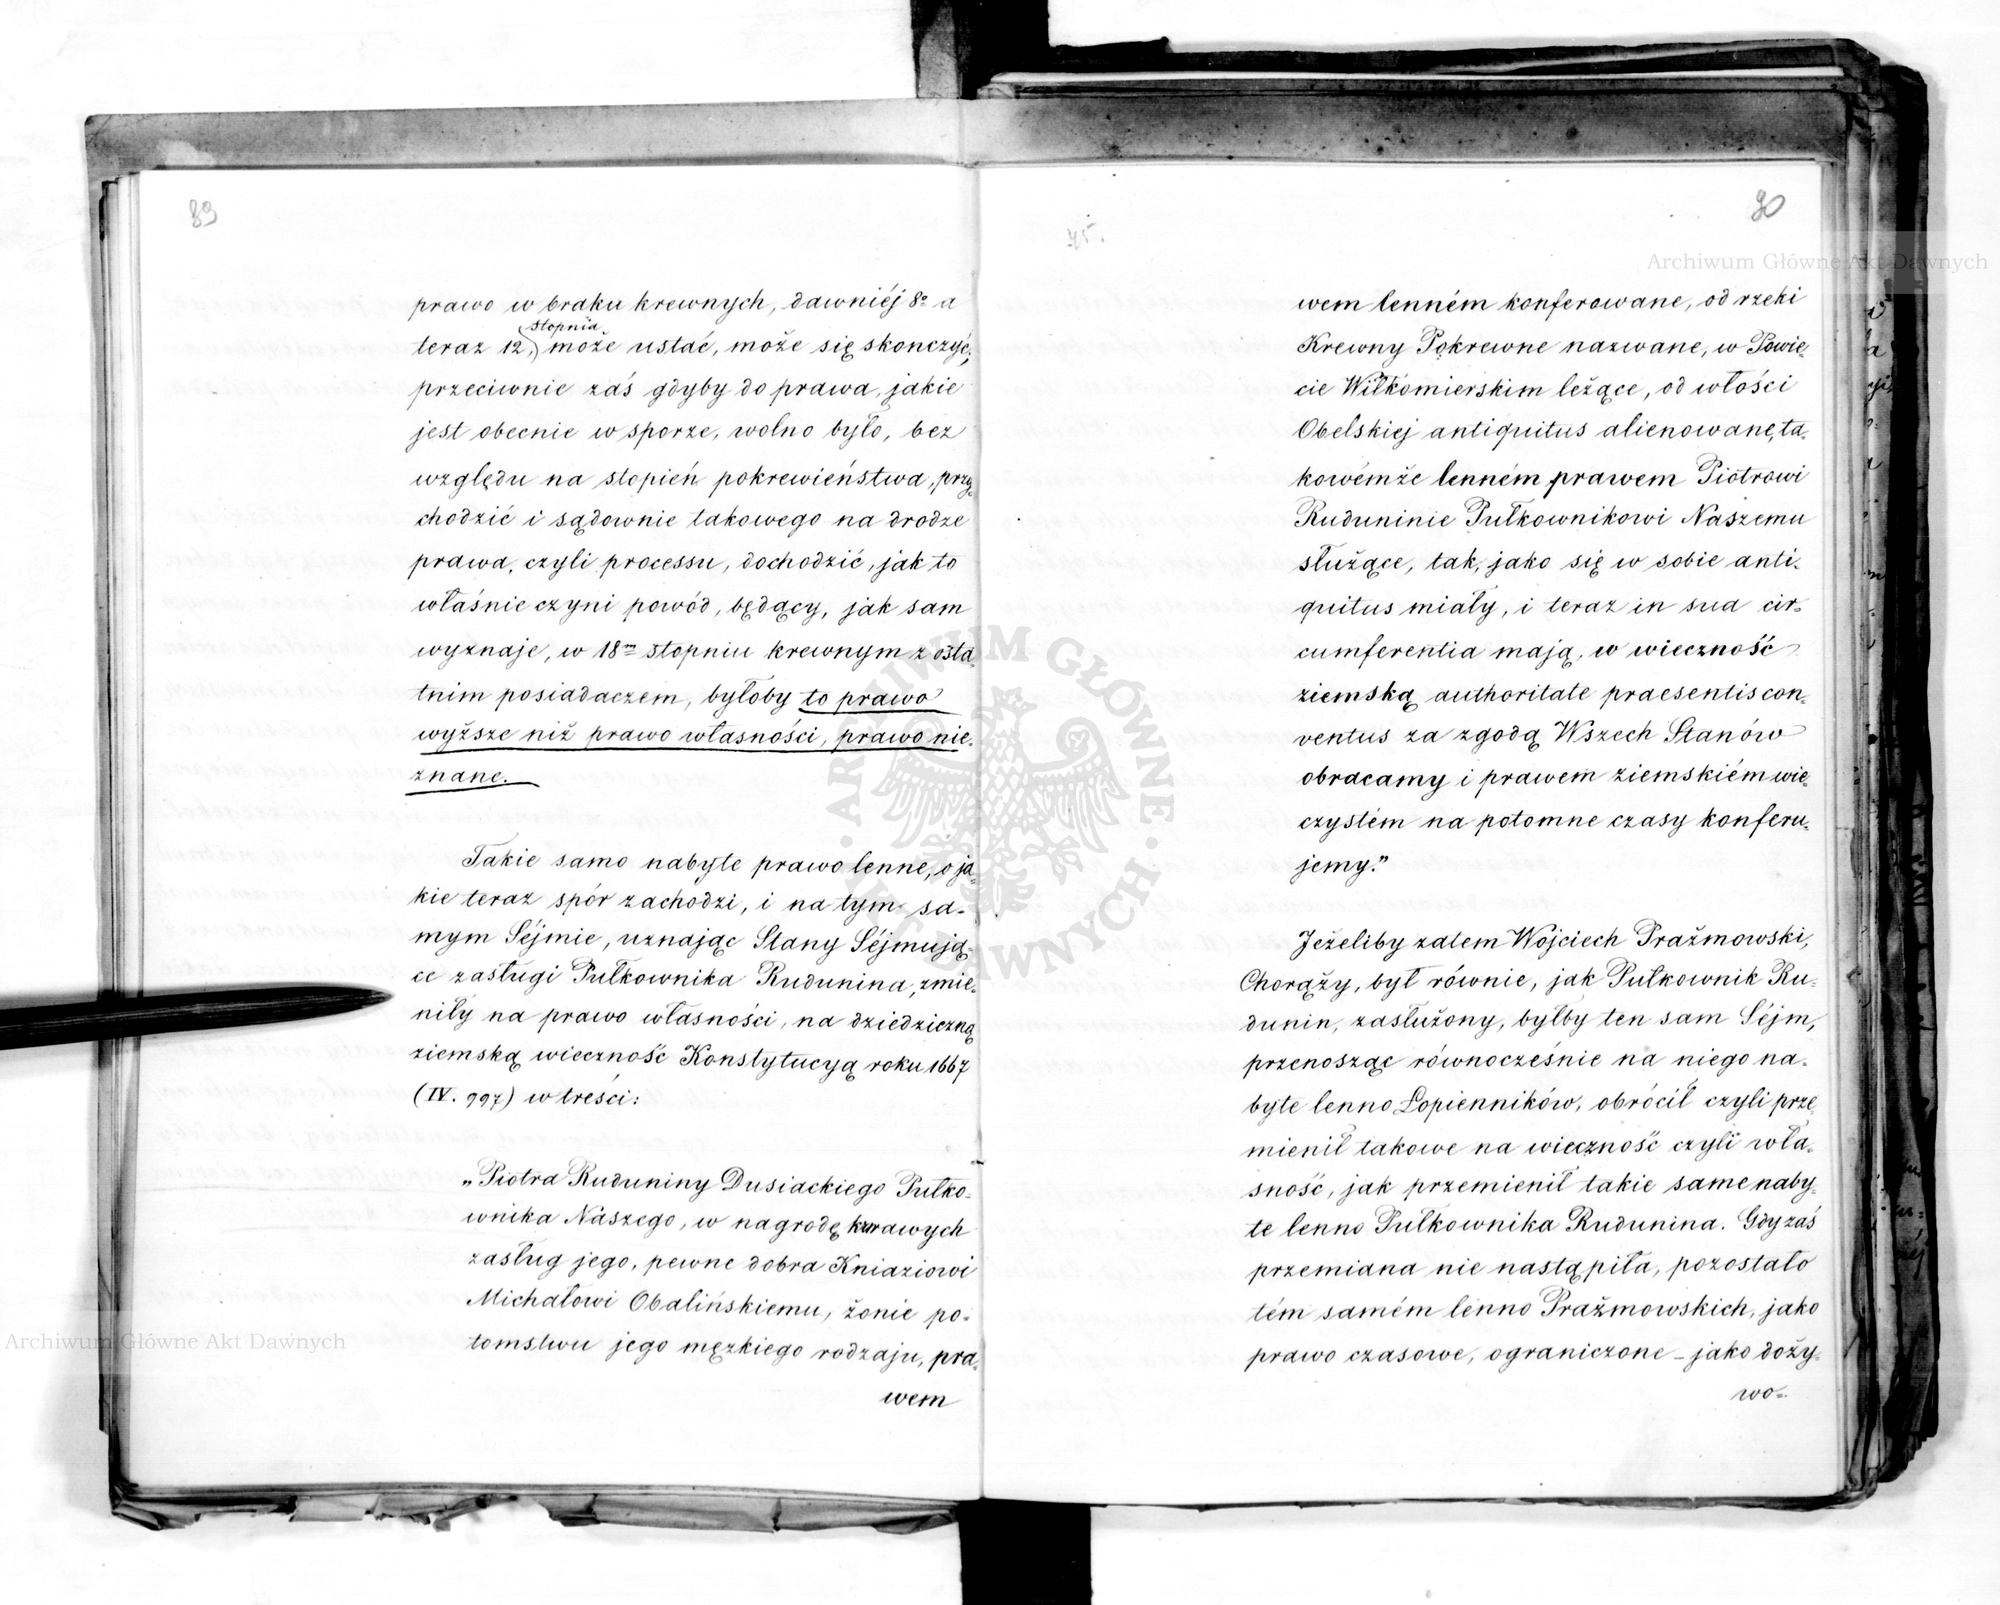 89
prawo w braku krewnych, dawniéj 8º a
stopnia
teraz 12, może ustać, może się skonczyć,
przeciwnie zaś gdyby do prawa, jakie
jest obecnie w sporze, wolno było, bez
względu na stopień pokrewieństwa, przy-
chodzić i sądownie takowego na drodze
prawa, czyli processu, dochodzić, jak to
właśnie czyni powód, będący, jak sam
wyznaje, w 18m stopniu krewnym z osta-
tnim posiadaczem, byłoby to prawo
wyższe niż prawo własności, prawo nie-
znane.
Takie samo nabyte prawo lenne, o ja-
kie teraz spór zachodzi, i na tym sa-
mym Séjmie, uznając Stany Séjmują-
ce zasługi Pułkownika Rudunina, zmie-
niły na prawo własności, na dziedziczną
ziemską wieczność Konstytucyą roku 1667
(IV. 997) w treści:
„Piotra Ruduniny Dusiackiego Pułko-
wnika Naszego, w nagrodę krwawych
zasług jego, pewne dobra Kniaziowi
Michałowi Obalińskiemu, żonie po-
tomstwu jego męzkiego rodzaju, pra-
wem
45.
90
wem lenném konferowane, od rzeki
Krewny Pokrewne nazwane, w Powie-
cie Wiłkomierskim leżące, od włości
Obelskiej antiquitus alienowane, ta-
kowémże lenném prawem Piotrowi
Ruduninie Pułkownikowi Naszemu
służące, tak, jako się w sobie anti-
quitus miały, i teraz in sua cir-
cumferentia mają, w wieczność
ziemską authoritate praesentis con-
ventus za zgodą Wszech Stanów
obracamy i prawem ziemskiém wie-
czystém na potomne czasy konferu-
jemy."
Jeżeliby zatem Wojciech Prażmowski,
Chorąży, był równie, jak Pułkownik Ru-
dunin, zasłużony, byłby ten sam Séjm,
przenosząc równocześnie na niego na-
byte lenno Łopienników, obrócił czyli prze-
mienił takowe na wieczność czyli wła-
sność, jak przemienił takie same naby-
te lenno Pułkownika Rudunina. Gdy zaś
przemiana nie nastąpiła, pozostało
tém samém lenno Prażmowskich, jako
prawo czasowe, ograniczone – jako doży-
wo-
Archiwum Główne Akt Dawnych
Archiwum Główne Akt Dawnych
ARCHIWUM GŁÓWNE AKT DAWNYCH